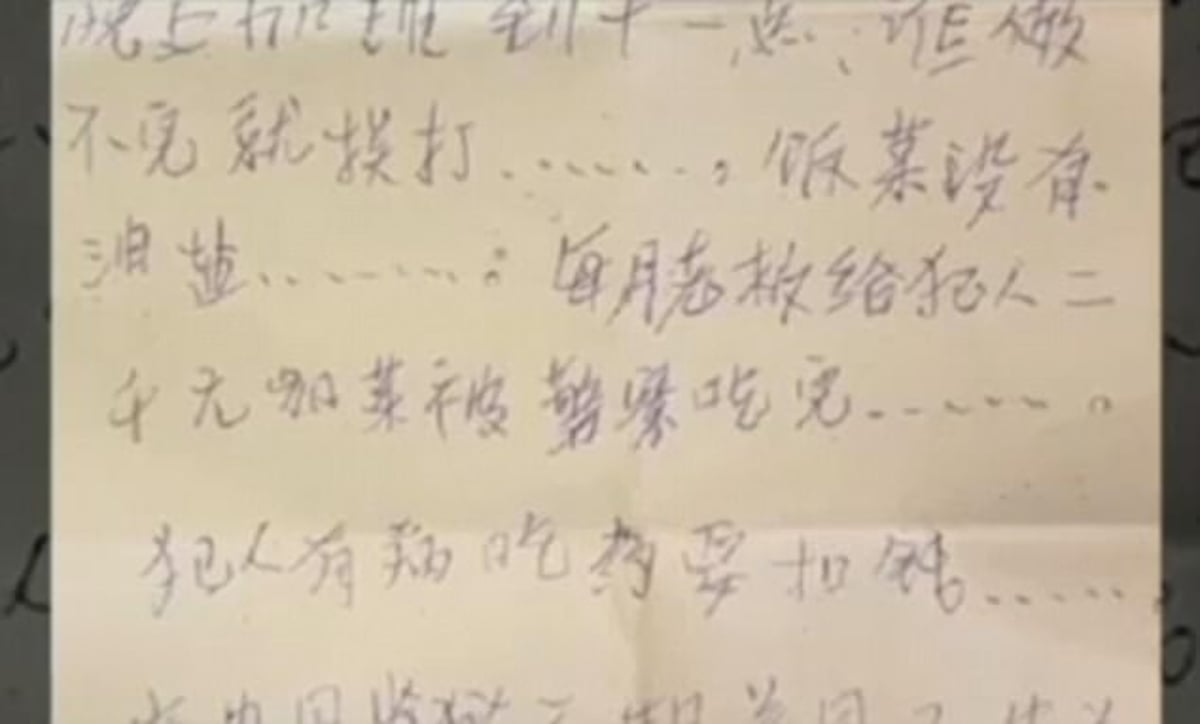 晚上加班到十一点，谁做
不完就挨打……，饭菜没有
油盐……。每月老板给犯人二
千元加菜被警察吃完……。
犯人有病吃药要扣钱……，
在中国监狱